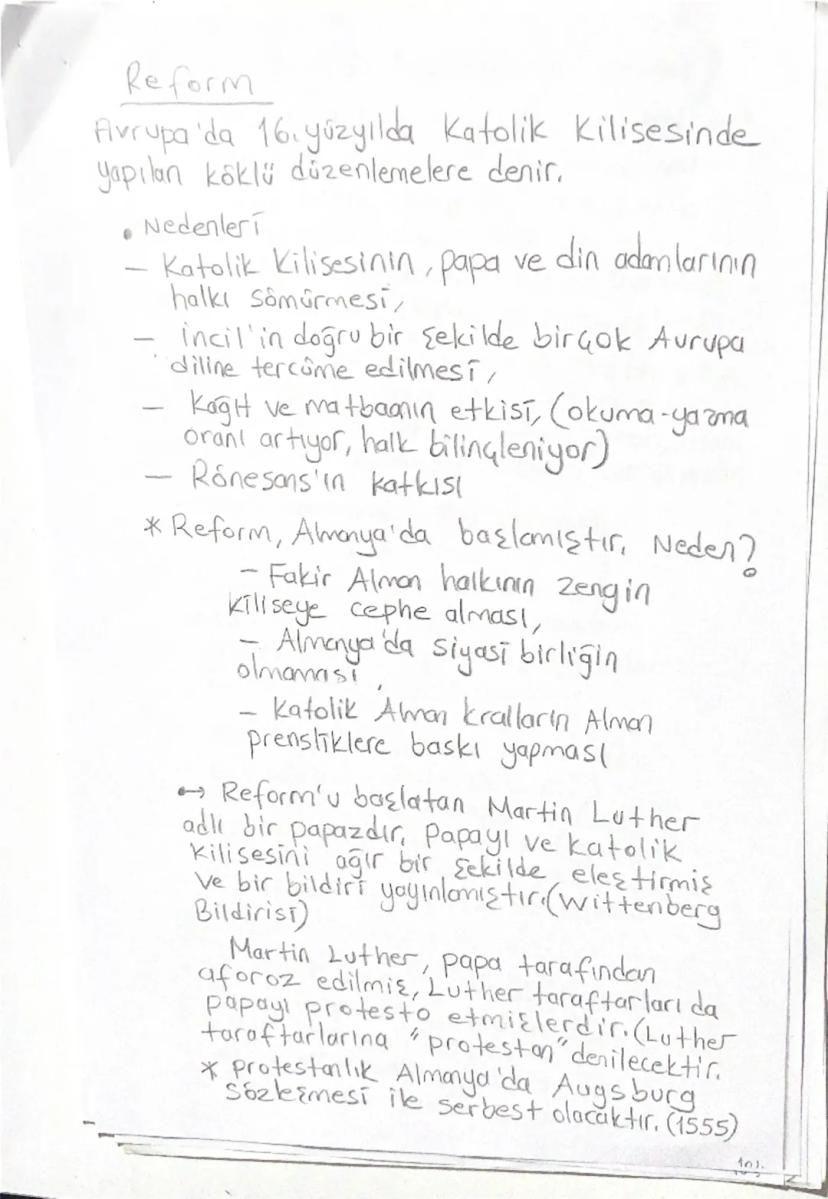 Reform
Avrupa'da 16. yüzyılda Katolik Kilisesinde
yapılan köklü düzenlemelere denir.
• Nedenleri
- Katolik Kilisesinin, papa ve din adamlarının
halkı sömürmesi,
- İncil'in doğru bir şekilde birçok Avrupa
diline tercüme edilmesi,
- Kağıt ve matbaanın etkisi, (okuma-yazma
oranı artıyor, halk bilinçleniyor)
- Rönesans'ın katkısı
* Reform, Almanya'da başlamıştır. Neden?
- Fakir Alman halkının zengin
kiliseye cephe alması,
- Almanya'da siyasi birliğin
olmaması,
- Katolik Alman kralların Alman
prensliklere baskı yapması
→ Reform'u başlatan Martin Luther
adlı bir papazdır. Papayı ve Katolik
Kilisesini ağır bir şekilde eleştirmiş
ve bir bildiri yayınlamıştır. (Wittenberg
Bildirisi)
Martin Luther, papa tarafından
aforoz edilmiş, Luther taraftarları da
papayı protesto etmişlerdir. (Luther
taraftarlarına "protestan" denilecektir.
* Protestanlık Almanya'da Augsburg
Sözleşmesi ile serbest olacaktır. (1555)